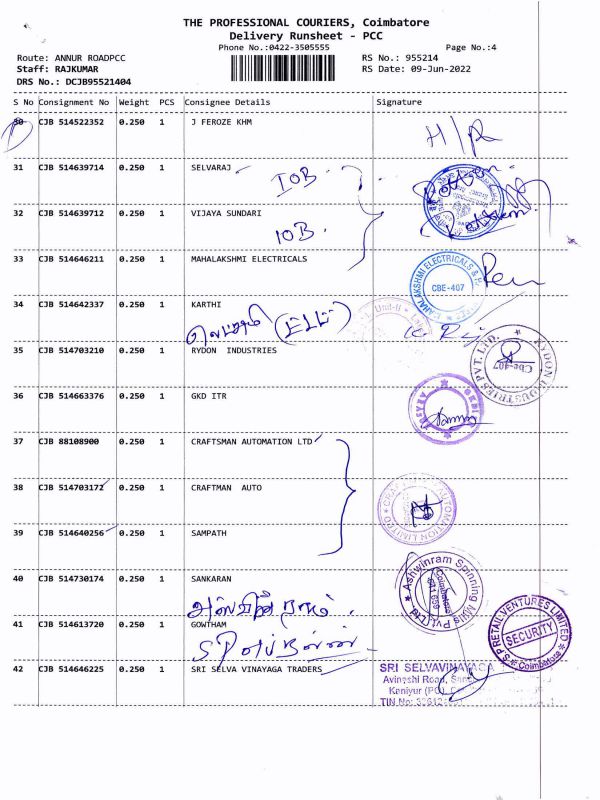 THE PROFESSIONAL COURIERS, Coimbatore
Delivery Runsheet - PCC
Phone No.:0422-3505555
Page No.:4
Route: ANNUR ROADPCC
RS No.: 955214
Staff: RAJKUMAR
RS Date: 09-Jun-2022
DRS No.: DCJB95521404
S No Consignment No Weight PCS Consignee Details Signature
30 CJB 514522352 0.250 1 J FEROZE KHM
H/R
31 CJB 514639714 0.250 1 SELVARAJ
IOB
32 CJB 514639712 0.250 1 VIJAYA SUNDARI
IOB.
33 CJB 514646211 0.250 1 MAHALAKSHMI ELECTRICALS
MAHALAKSHMI ELECTRICALS
CBE-407
34 CJB 514642337 0.250 1 KARTHI
Unit-II
35 CJB 514703210 0.250 1 RYDON INDUSTRIES
RYDON INDUSTRIES PVT. LTD.
Cbe-407
36 CJB 514663376 0.250 1 GKD ITR
37 CJB 88108900 0.250 1 CRAFTSMAN AUTOMATION LTD
38 CJB 514703172 0.250 1 CRAFTMAN AUTO
AUTOMATION LIMITED
39 CJB 514640256 0.250 1 SAMPATH
40 CJB 514730174 0.250 1 SANKARAN
Ashwinram Spinning Mills Pvt. Ltd.
Coimbatore
41 CJB 514613720 0.250 1 GOWTHAM
S.P. RETAIL VENTURES LIMITED
SECURITY
Coimbatore
42 CJB 514646225 0.250 1 SRI SELVA VINAYAGA TRADERS
SRI SELVAVINAYAGA
Avinashi Road,
Kaniyur (PO),
TIN No: